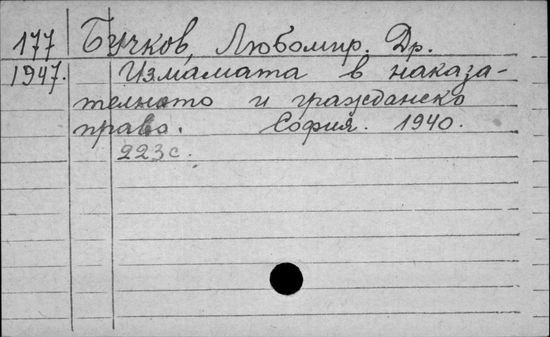 177 Бучков, Любомир. Др.
1947. Измамата в наказа-
телното и гражданско
право. София. 1940.
223 с.